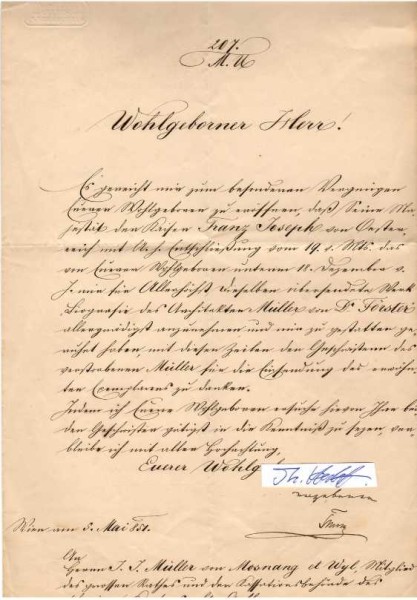 207.
M. U
Wohlgeborner Herr!
Es gereicht mir zum besonderen Vergnügen
Euerer Wohlgeboren zu eröffnen, daß Seine Ma-
jestät der Kaiser Franz Joseph von Oester-
reich mit Ah. Entschließung vom 19. v. Mts. das
von Euerer Wohlgeboren unterm 18. Dezember v.
J. mir für Allerhöchst dieselben übersendete Werk
Biografie des Architekten Müller von Dr Förster
allergnädigst anzunehmen und mir zu gestatten ge-
ruht haben mit diesen Zeilen den Geschwistern des
verstorbenen Müller für die Einsendung des erwähn-
ten Exemplares zu danken.
Indem ich Euere Wohlgeboren ersuche hievon Ihre bei-
den Geschwister gütigst in die Kenntniß zu sezen, ver-
bleibe ich mit aller Hochachtung,
Euerer Wohlg
ergebener
Wien am 5. Mai 851.
An
Herrn J. J. Müller von Mosnang et Wyl, Mitglied
des grossen Rathes und der Kassationsbehörde des